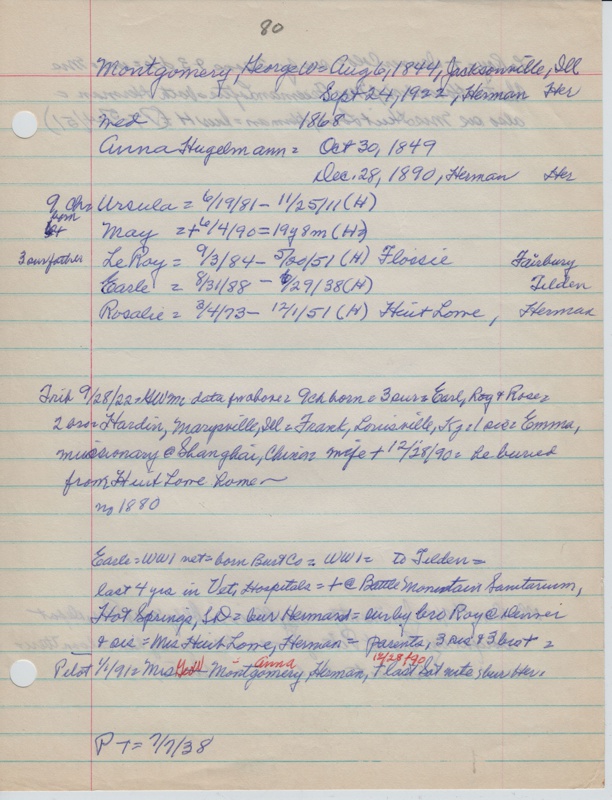 80
Montgomery, George W = Aug 6, 1844, Jacksonville, Ill
Sept 24, 1922, Herman Her
Med 1868
Anna Hugelmann = Oct 30, 1849
Dec. 28, 1890, Herman Her
9 Ch = Ursula = 6/19/81 - 11/25/11 (H)
born
May = + 6/4/90 = 19y 8m (H)
3 sur father LeRoy = 9/3/84 - 5/30/51 (H) Flossie Fairbury
Earle = 8/31/88 - 6/29/38 (H) Tilden
Rosalie = 3/4/73 - 12/1/51 (H) Huit Lowe, Herman
Trib 9/28/22 = GWM data for above = 9 ch born = 3 sur = Earl, Roy & Rose =
2 bros = Hardin, Marysville, Ill = Frank, Louisville, Ky = 1 sis = Emma,
missionary @ Shanghai, China = wife + 12/28/90 = he buried
from Huit Lowe home ~
no 1880
Earle = WW1 vet = born Burt Co = WW1 = To Tilden =
last 4 yrs in Vets Hospitals = + @ Battle Mountain Sanitarium,
Hot Springs, SD = bur Herman = sur by bro Roy @ Denver
& sis = Mrs Huit Lowe, Herman = parents, 3 sis & 3 bro + =
Pilot 1/1/91 = Mrs Geo W Montgomery, Herman, + last Sat nite = bur Her.
Anna 12/28/90
P T = 7/7/38